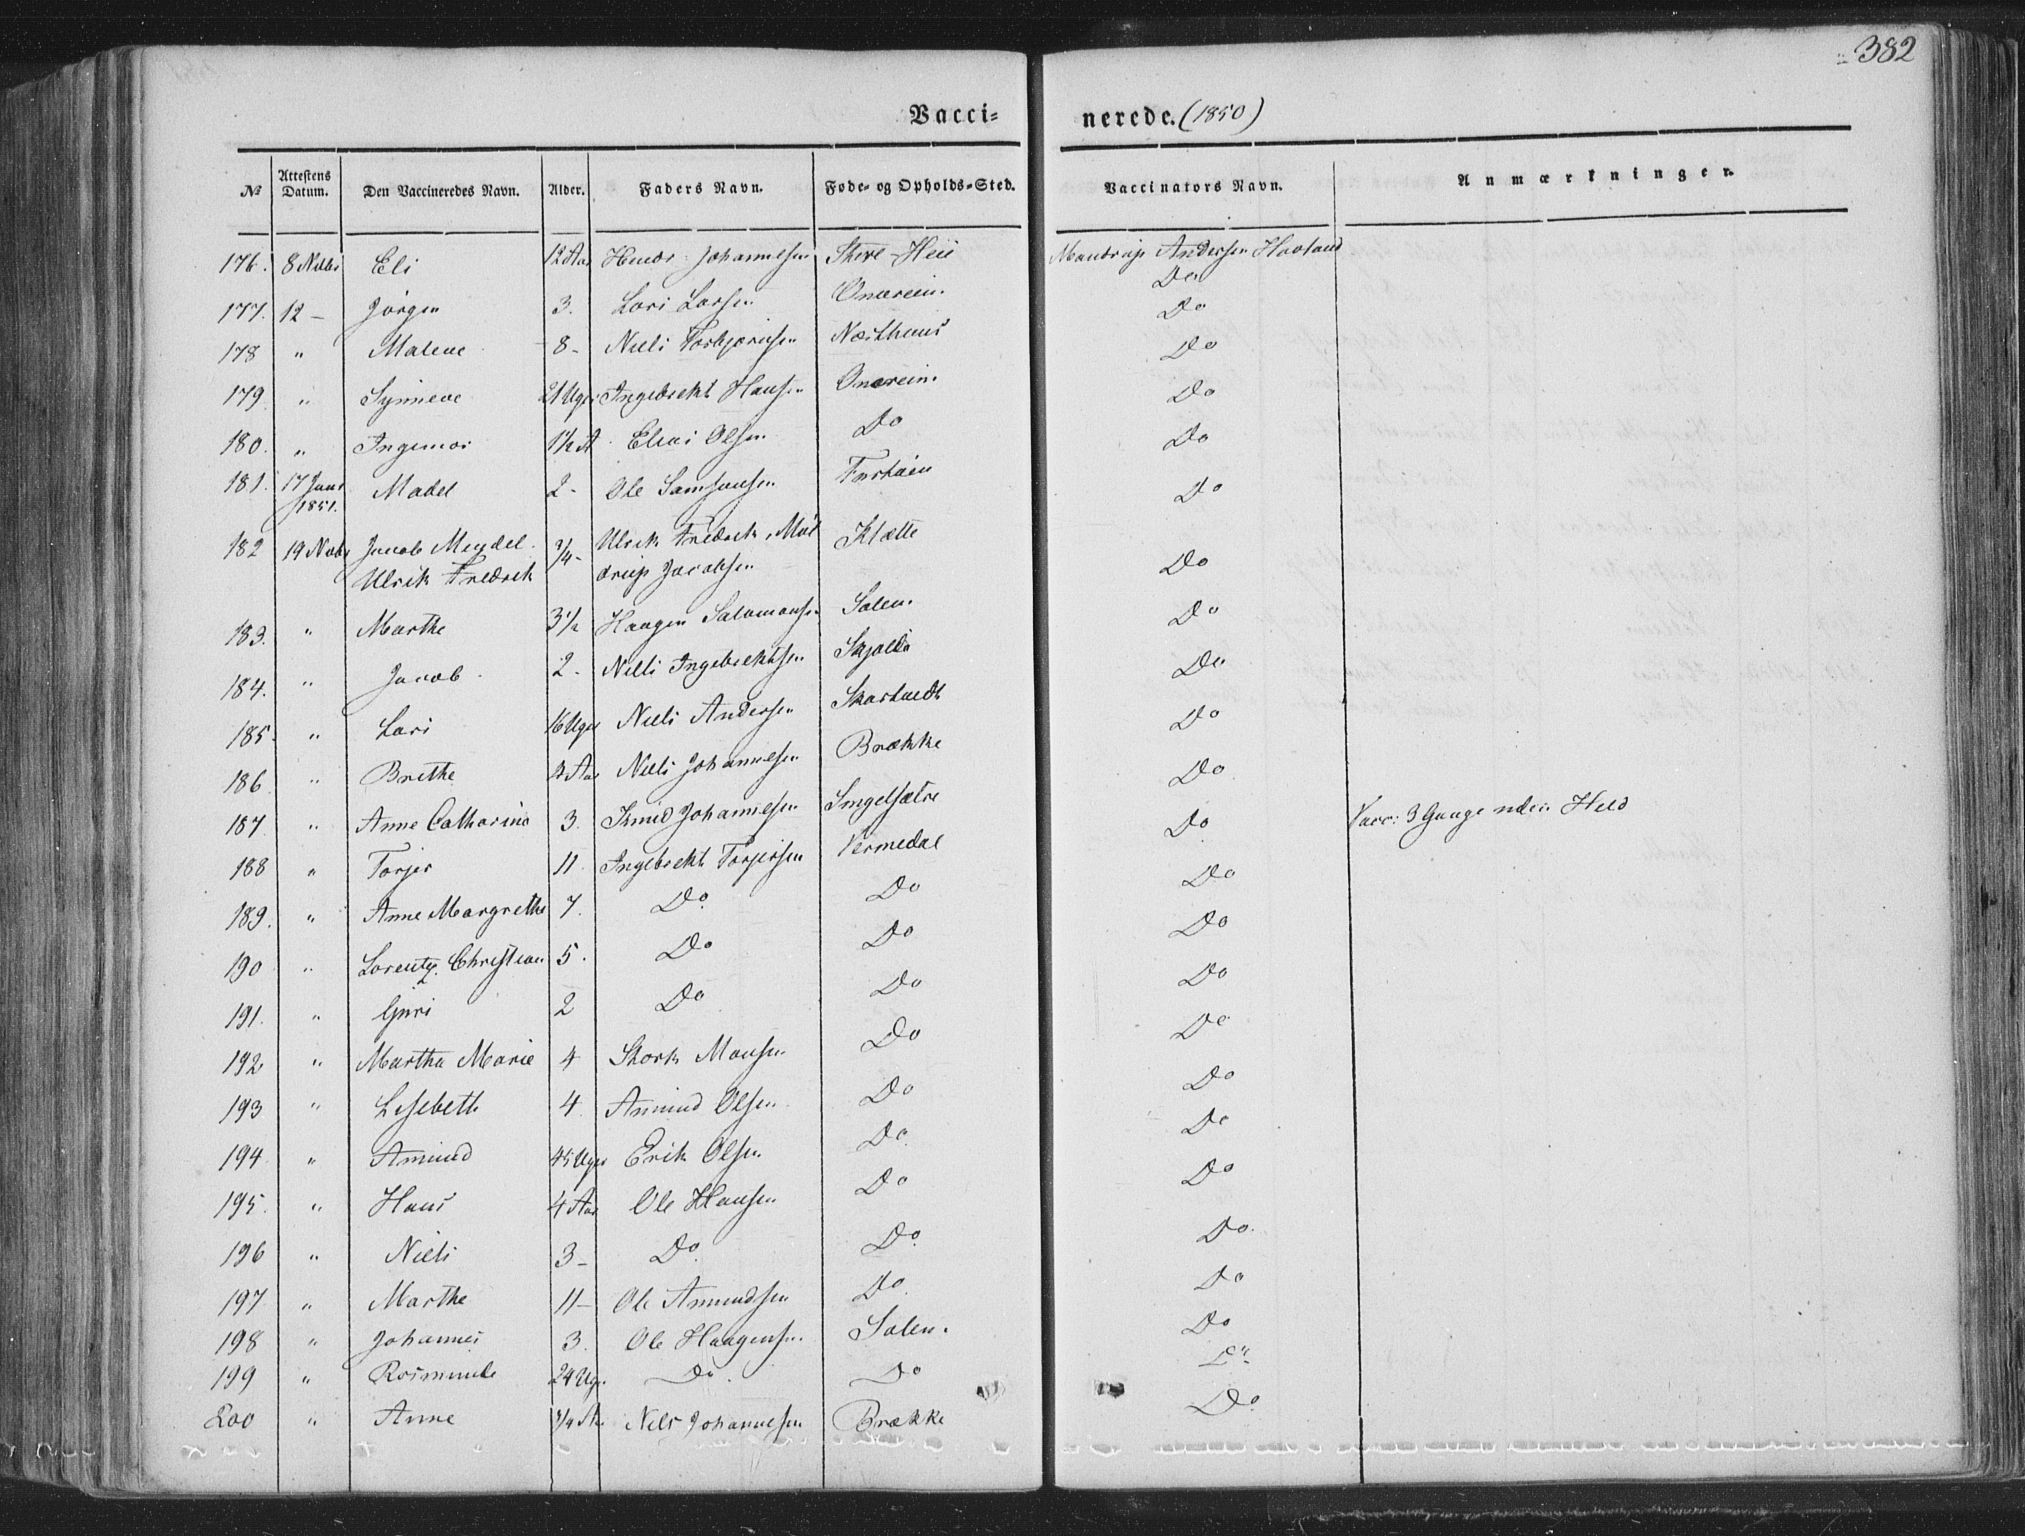 382
Vacci-nerede. (1850)
№ Attestens Datum. Den Vaccineredes Navn. Alder. Faders Navn. Føde- og Opholds-Sted. Vaccinators Navn. Anmærkninger.
176. 8 Novbr Eli 12 Aar Johannesen Andersen Do
177. 12 – Jörgen 3. Lars Larsen Onarein. Do
178 " Malene 8 - Niels Torbjørnsen Næsthuus Do
179 " Synneve 21 Uger Ingebrekt Hansen Onarein. Do
180. " Ingemor 1½ A Elias Olsen Do Do
181. 17 Janr 1851. Madel 2 - Ole Samsonsen Do
182 19 Novbr Jacob Meydel Ulrik Fredrik ¾ - Ulrik Fredrik Jacobsen Klætte Do
183. " Marthe 3½ Haagen Salamonsen Solem. Do
184. " Jacob 2 - Niels Ingebrektsen Do
185. " Lars 16 Uger Niels Andersen Skartvedt Do
186 " Brethe Aar Niels Johannesen Brække Do
187 " Anne Catharina 3. Knud Johannesen Singelsætre Do Vacc: 3 Gange uden Held
188 " Torjer 11. Ingebrekt Torjersen Vermedal Do
189. " Anne Margrethe 7. Do Do Do
190 " Lorentz Christian 5. Do Do Do
191. " Guri 2 Do Do Do
192 " Martha Marie 4 Stork Monsen Do Do
193 " Lisebeth 4. Amund Olsen Do Do
194 " Amund 45 Uger Erik Olsen Do Do
195. " Hans 4 Aar Ole Hansen Do Do
196 " Niels 3 - Do Do Do
197 " Marthe 11 - Ole Amundsen Do Do
198 " Johannes 3. Ole Haagensen Solem. Do
199 " Rosmunde 24 Uger Do Do Do
200 " Anne ¾ Aar Niels Johannesen Brække Do